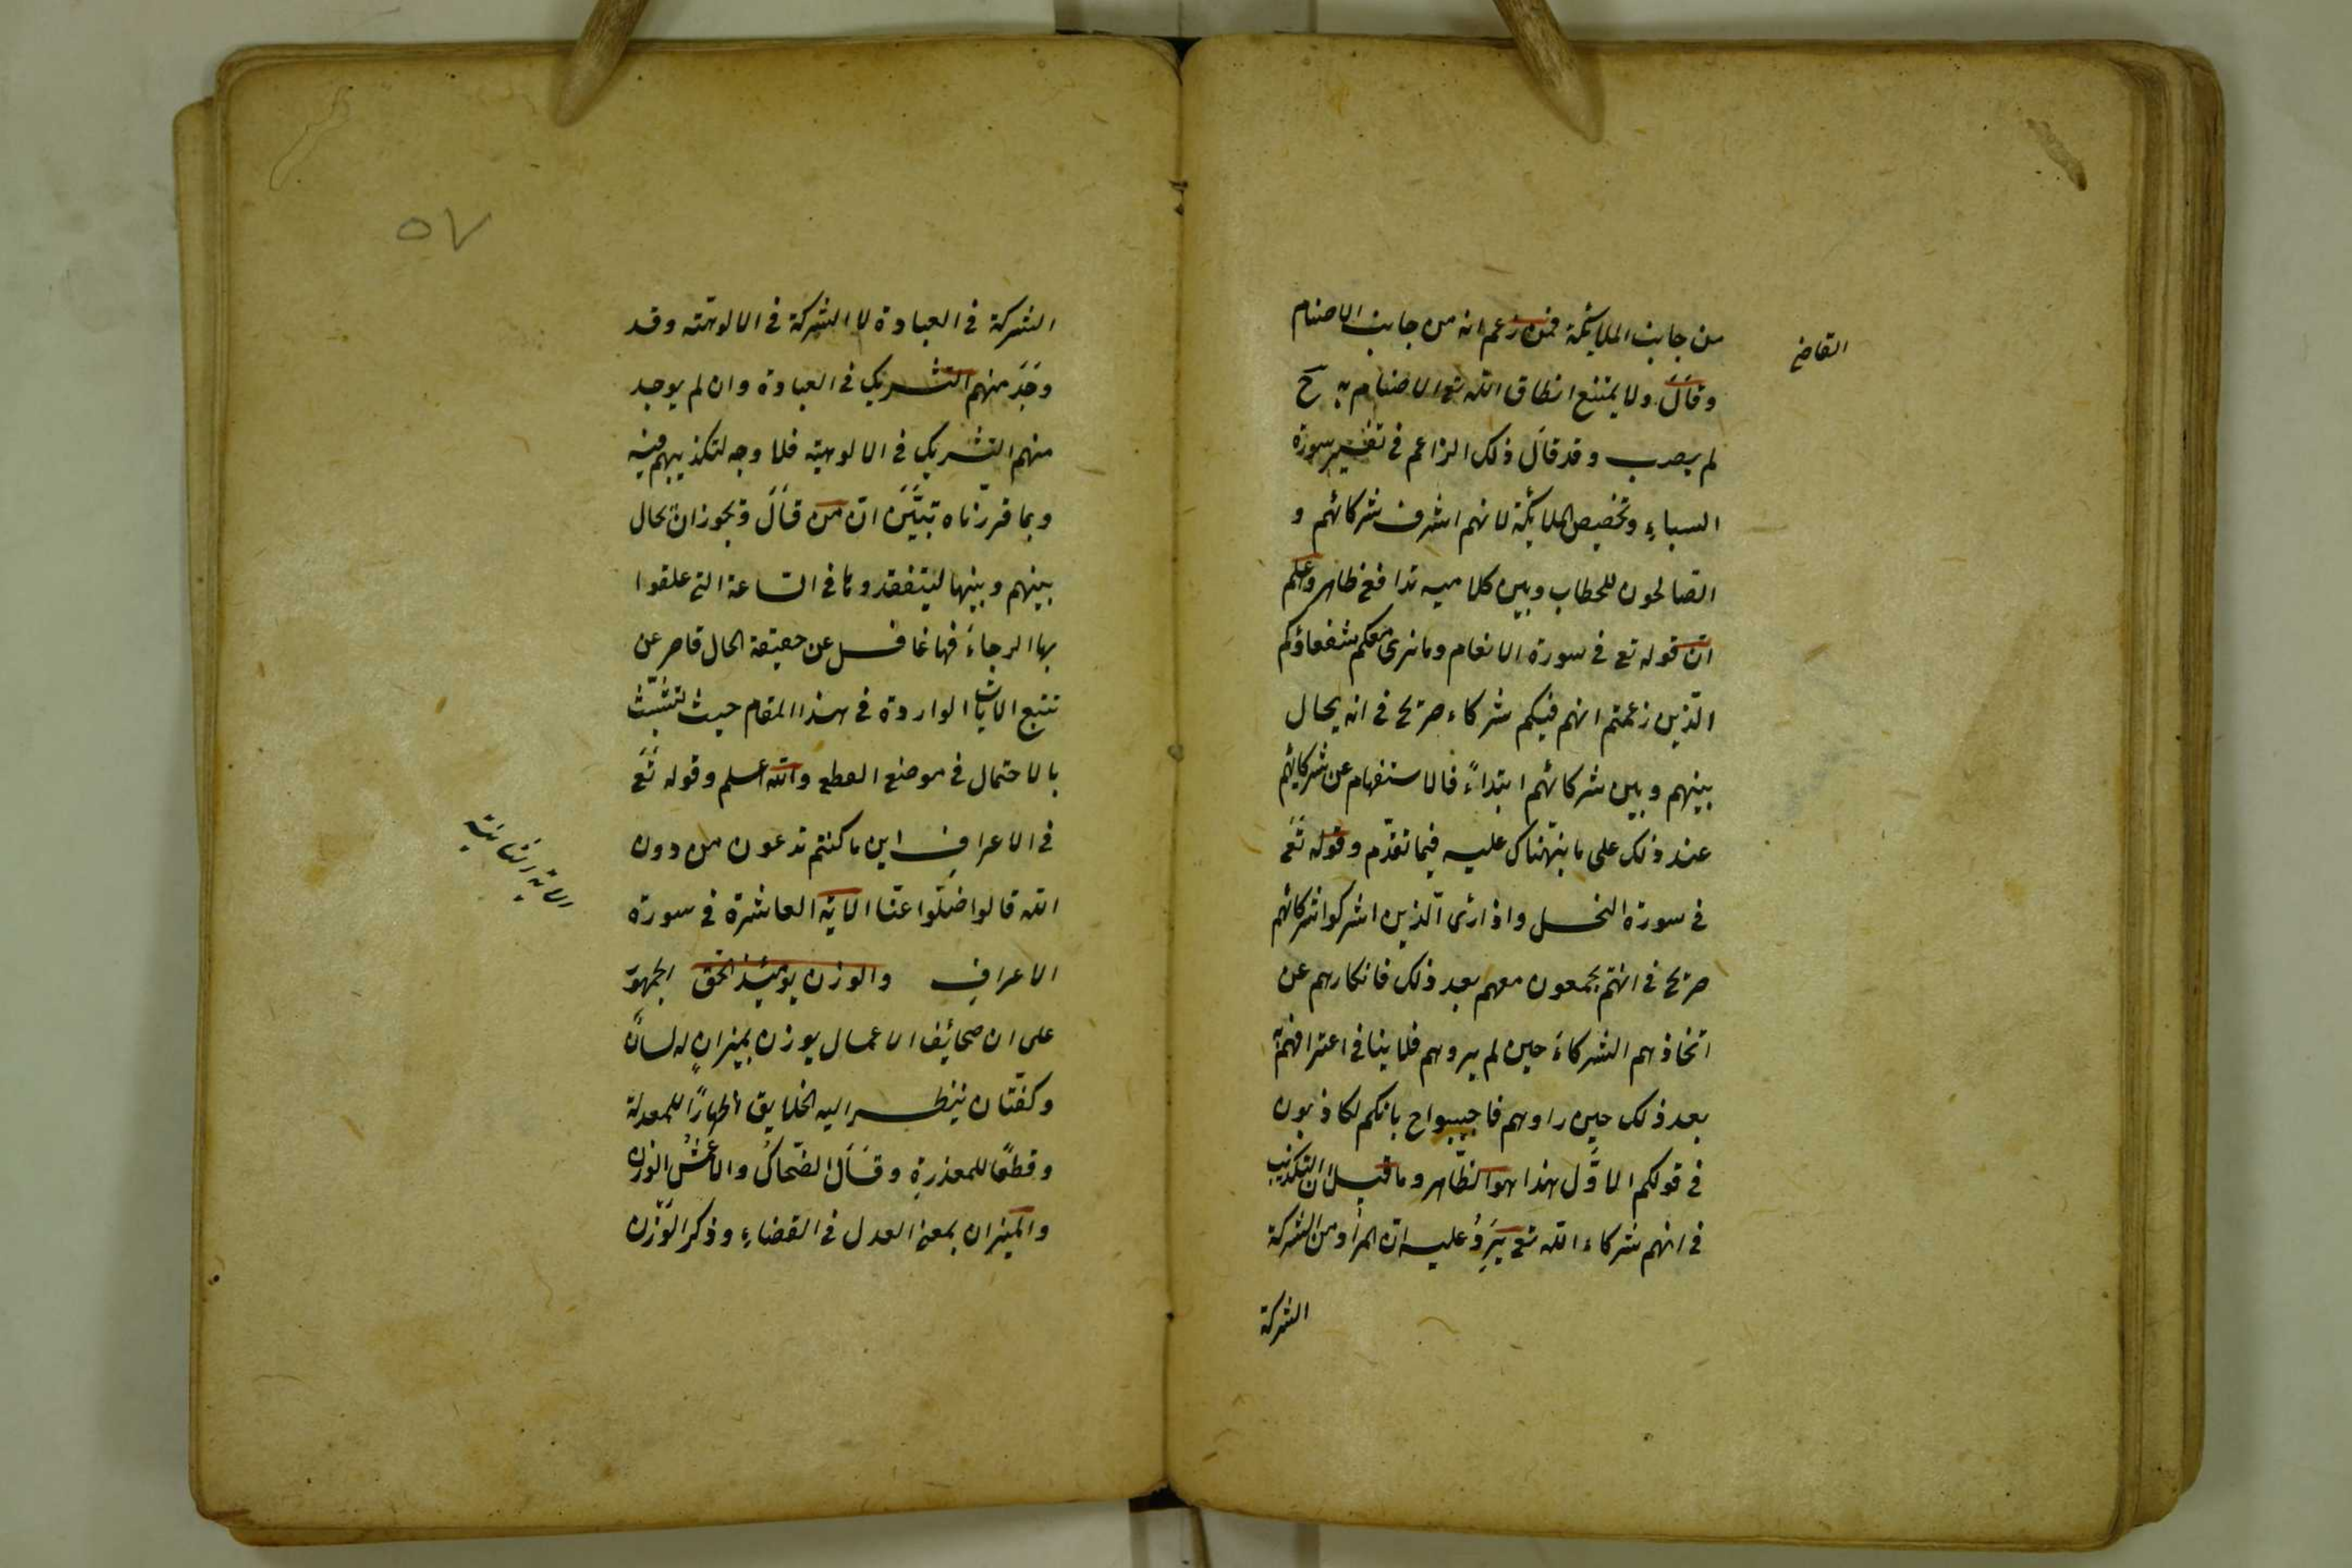 من جانب الملائكة فمن زعم انه من جانب الاصنام
القاضى
وقال ولا يمتنع انطاق الله تع الاصنام به ح
لم يصب وقد قال ذلك الزاعم فى تفسير سورة
السباء وتخصيص الملائكة لانهم اشرف شركائهم و
الصالحون للخطاب وبين كلاميه تدافع ظاهر واعلم
ان قوله تع فى سورة الانعام وما نرى معكم شفعاؤكم
الذين زعمتم انهم فيكم شركاء صريح فى انه يحال
بينهم وبين شركائهم ابتداءً فالاستفهام عن شركائهم
عند ذلك على ما نبهناك عليه فيما تقدم وقوله تع
فى سورة النحل واذا رأى الذين اشركوا شركائهم
صريح فى انهم يجمعون معهم بعد ذلك فانكارهم عن
اتخاذهم الشركاء حين لم يروهم فلا ينافى اعترافهم به
بعد ذلك حين راوهم فاجيبوا ح بانكم لكاذبون
فى قولكم الاول هذا هو الظاهر وما قيل ان التكذيب
فى انهم شركاء الله تع يَرِدُ عليه ان المراد من الشركة
الشركة
٥٧
الشركة فى العبادة لا الشركة فى الالوهية وقد
وُجِدَ منهم التشريك فى العبادة وان لم يوجد
منهم التشريك فى الالوهية فلا وجه لتكذيبهم فيه
وبما قررناه تبيَّن ان من قال ويجوز ان يحال
بينهم وبينها ليتفقدوها فى الساعة التى علقوا
بها الرجاء فيها غافل عن حقيقة الحال قاصر عن
تتبع الآيات الواردة فى هذا المقام حيث تشبث
بالاحتمال فى موضع القطع والله اعلم وقوله تع
فى الاعراف اين ما كنتم تدعون من دون
الله قالوا ضلّوا عنّا الآية العاشرة فى سورة
الاعراف والوزن يومئذ الحق الجمهور
على ان صحائف الاعمال يوزن بميزانٍ له لسان
وكفّتان ينظر اليه الخلايق اظهارًا للمعدلة
وقطعًا للمعذرة وقال الضحاك والاعمش الوزن
والميزان بمعنى العدل فى القضاء وذكر الوزن